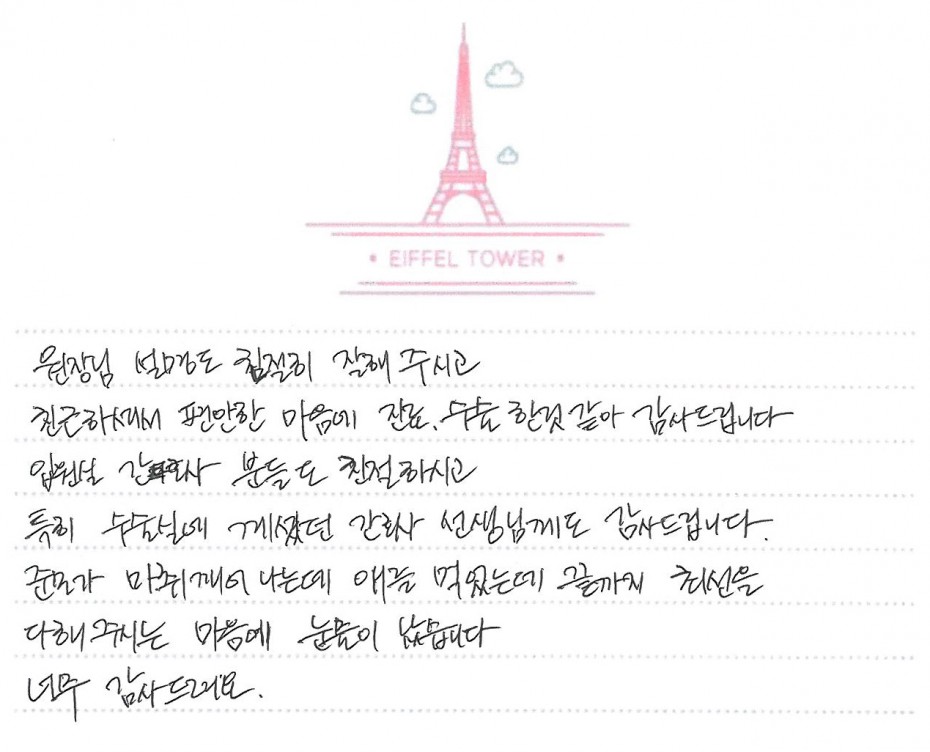 EIFFEL TOWER
원장님 설명도 친절히 잘해 주시고
친근하셔서 편안한 마음에 진료. 수술 한것 같아 감사드립니다
입원실 간호사 분들도 친절하시고
특히 수술실에 계셨던 간호사 선생님께도 감사드립니다.
마취깨어나는데 애를 먹었는데 끝까지 최선을
다해주시는 마음에 눈물이 났습니다
너무 감사드려요.